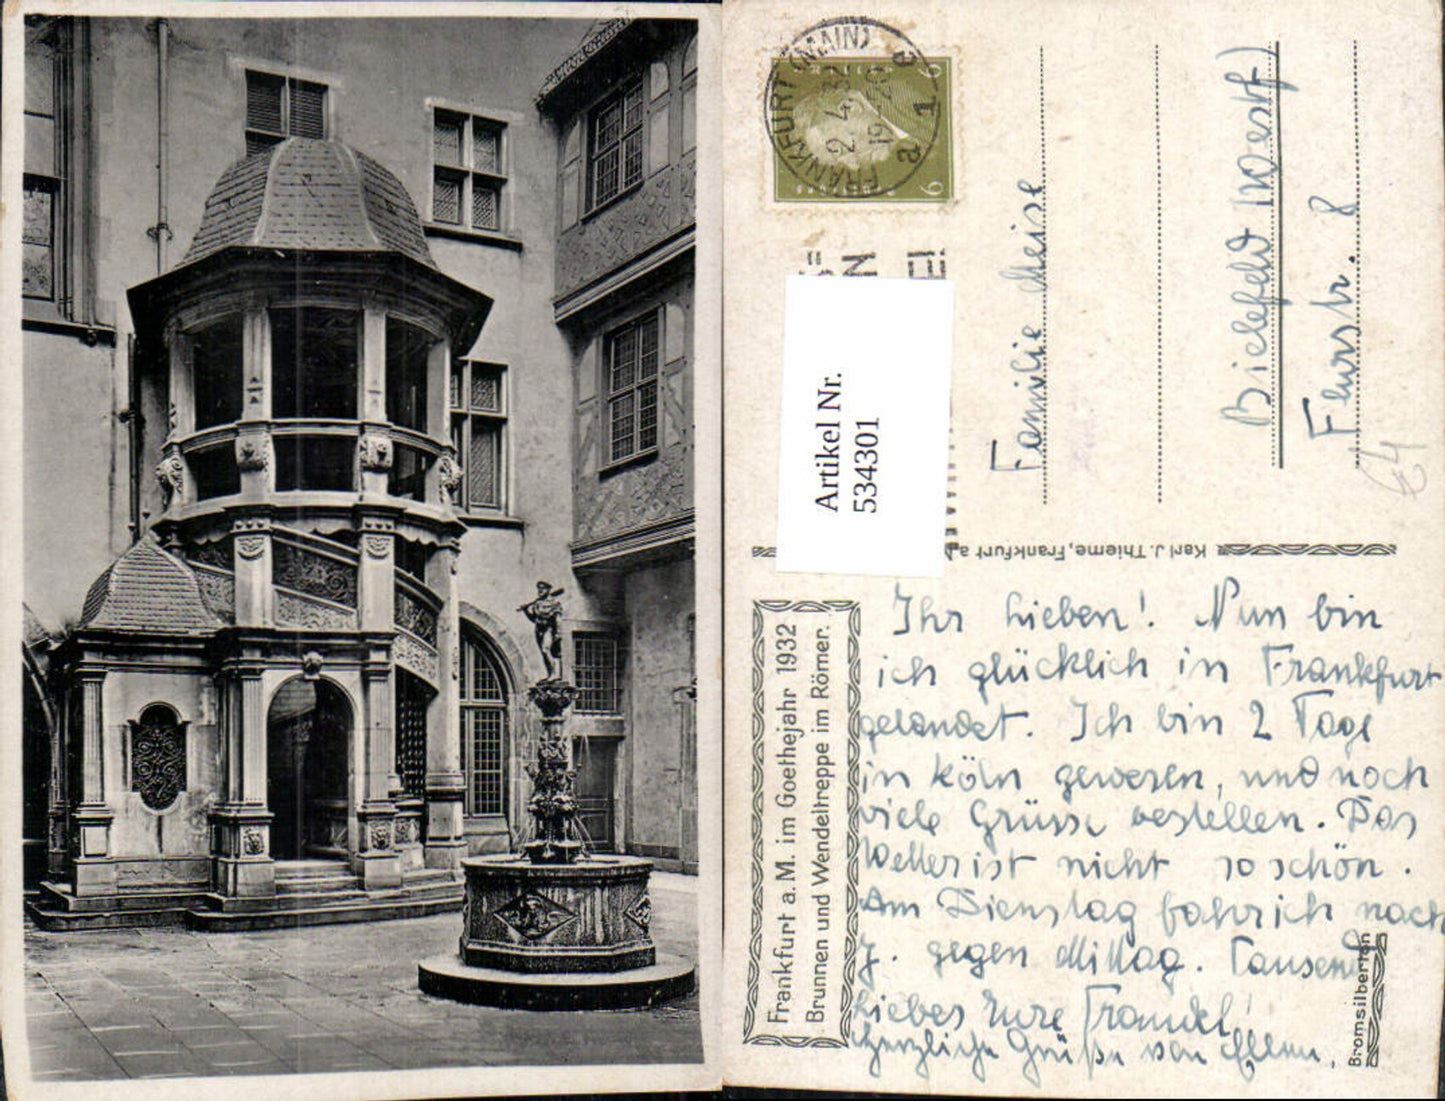 FRANKFURT (MAIN)
2.4.32
19-20
a 1 a
6 6
6
Artikel Nr.
534301
Familie Meise
Bielefeld Westf
8
Karl J. Thieme, Frankfurt a.
Frankfurt a. M. im Goethejahr 1932
Brunnen und Wendeltreppe im Römer.
Ihr Lieben! Nun bin
ich glücklich in Frankfurt
gelandet. Ich bin 2 Tage
in Köln gewesen, und noch
viele Grüsse bestellen. Das
Wetter ist nicht so schön.
Am Dienstag fahr ich nach
J. gegen Mittag. Tausend
Liebes Eure Traudel!
Herzliche Grüße von Ellen.
Bromsilberton